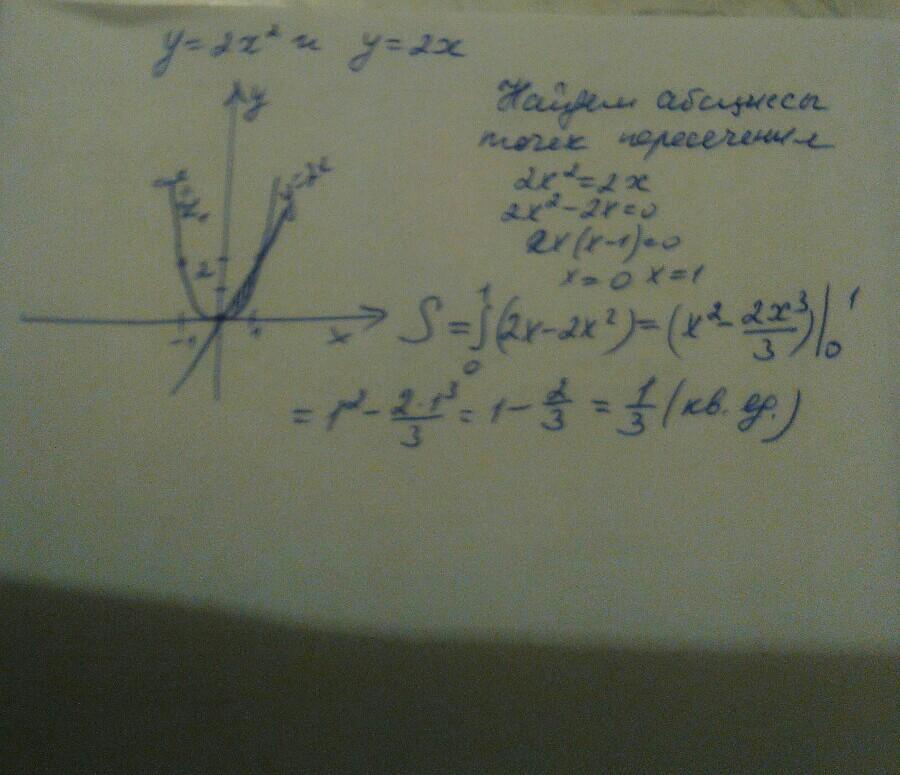 y=2x² и y=2x
y
Найдем абсциссы
точек пересечения
2x²=2x
2x²-2x=0
2x(x-1)=0
x=0 x=1
2
-1 1 x
S=∫₀¹(2x-2x²)=(x²-2x³/3)|₀¹
=1²-2·1³/3=1-2/3=1/3(кв. ед.)